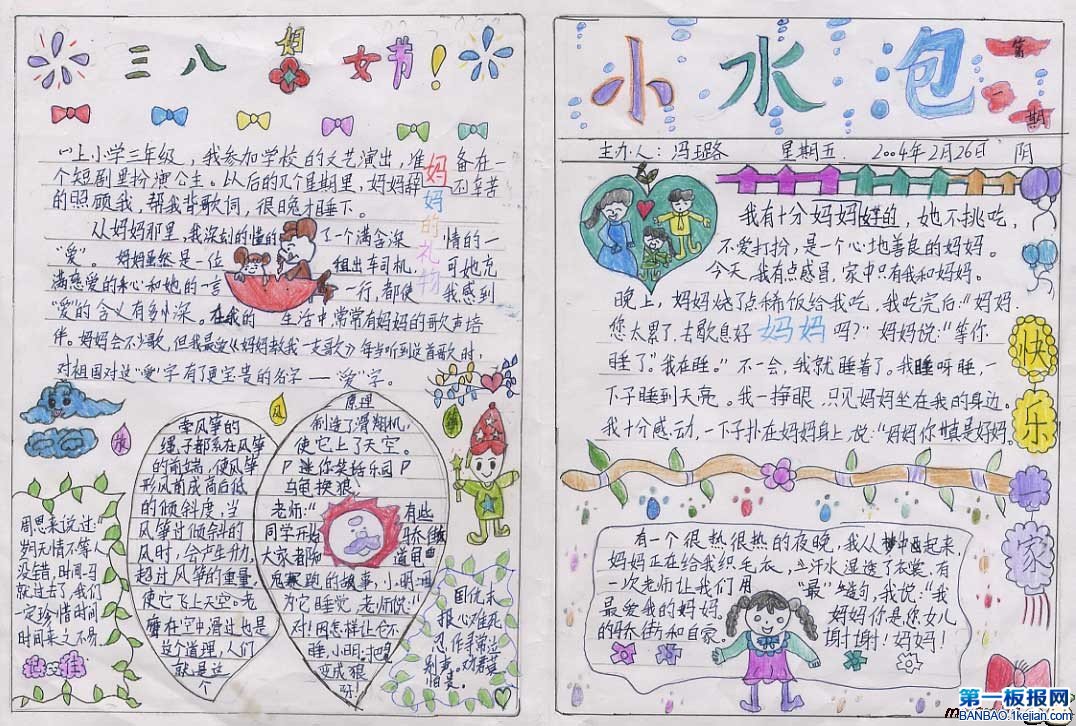 三八妇女节!
妈妈的礼物
上小学三年级,我参加学校的文艺演出,准备在一
个短剧里扮演公主。以后的几个星期里,妈妈 不辛苦
的照顾我,帮我背歌词,很晚才睡下。
从妈妈那里,我深刻的懂的了一个满含深情的一
“爱”。妈妈虽然是一位租出车司机,可她充
满恋爱的 心和她的一言一行,都使我感到
“爱”的含义有多么深。在我的生活中,常常有妈妈的歌声陪
伴。妈妈会不少歌,但我最爱《妈妈教我一支歌》每当听到这首歌时,
对祖国对这“爱”字有了更宝贵的名字——“爱”字。
放风筝
牵风筝的
绳子都系在风筝
的前端,使风筝
形风前成高后低
的倾斜度,当
风筝过倾斜的
风时,会产生升力,
超过风筝的重量,
使它飞上天空。老
鹰在空中滑过也是
这个道理,人们
就是这
个
原理
制造了滑翔机,
使它上了天空。
P 迷你笑话乐园 P
乌龟换狼
老师:“有些
同学开始骄傲
大家都 道龟
兔赛跑的故事,小明,
为它睡觉,老师说:“
对!因怎样让它不
睡,小明:把龟
变成狼
呀!
周恩来说过:“
时间不等人
没错,时间一马
就过去了,我们
一定珍惜时间
时间来之不易。
国仇未
报心难死
忍作寻常泣
别声。劝君莫
惜贵。
小水泡
第一期
主办人:冯璐路 星期五 2004年2月26日 阴
我有十分妈妈 的,她不挑吃,
不爱打扮,是一个心地善良的妈妈。
今天,我有点感冒,家中只有我和妈妈。
晚上,妈妈烧了点稀饭给我吃,我吃完后:“妈妈
您太累了,去歇息好妈妈吗?”妈妈说:“等你
睡了”。我在睡。”不一会,我就睡着了。我睡呀睡,一
下子睡到天亮。我一挣眼,只见妈妈坐在我的身边。
我十分感动,一下子扑在妈妈身上,说:“妈妈你真是好妈。
快乐一家
有一个很热很热的夜晚,我从梦中西起来,
妈妈正在给我织毛衣,汗水湿透了衣裳。有
一次老师让我们用“最”造句,我说:“我
最爱我的妈妈。妈妈你是您女儿
的骄街和自豪。 谢!妈妈!
第一板报网
BANBAO.1kejian.com